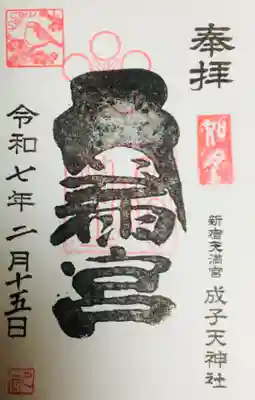 奉拝
如月
天満宮
新宿天満宮
成子天神社
令和七年二月十五日